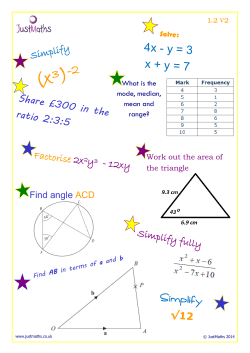 JustMaths
1.2 V2
Simplify
(x³)⁻²
Solve:
4x - y = 3
x + y = 7
Share £300 in the
ratio 2:3:5
What is the
mode, median,
mean and
range?
Mark Frequency
4 3
5 1
6 2
7 8
8 6
9 5
10 5
Factorise 2x²y³ - 12xy
Work out the area of
the triangle
9.3 cm
43°
6.9 cm
Find angle ACD
Simplify fully
x² + x - 6
x² - 7x + 10
Find AB in terms of a and b
B
P
b
O
a
A
Simplify
√12
www.justmaths.co.uk
© JustMaths 2014